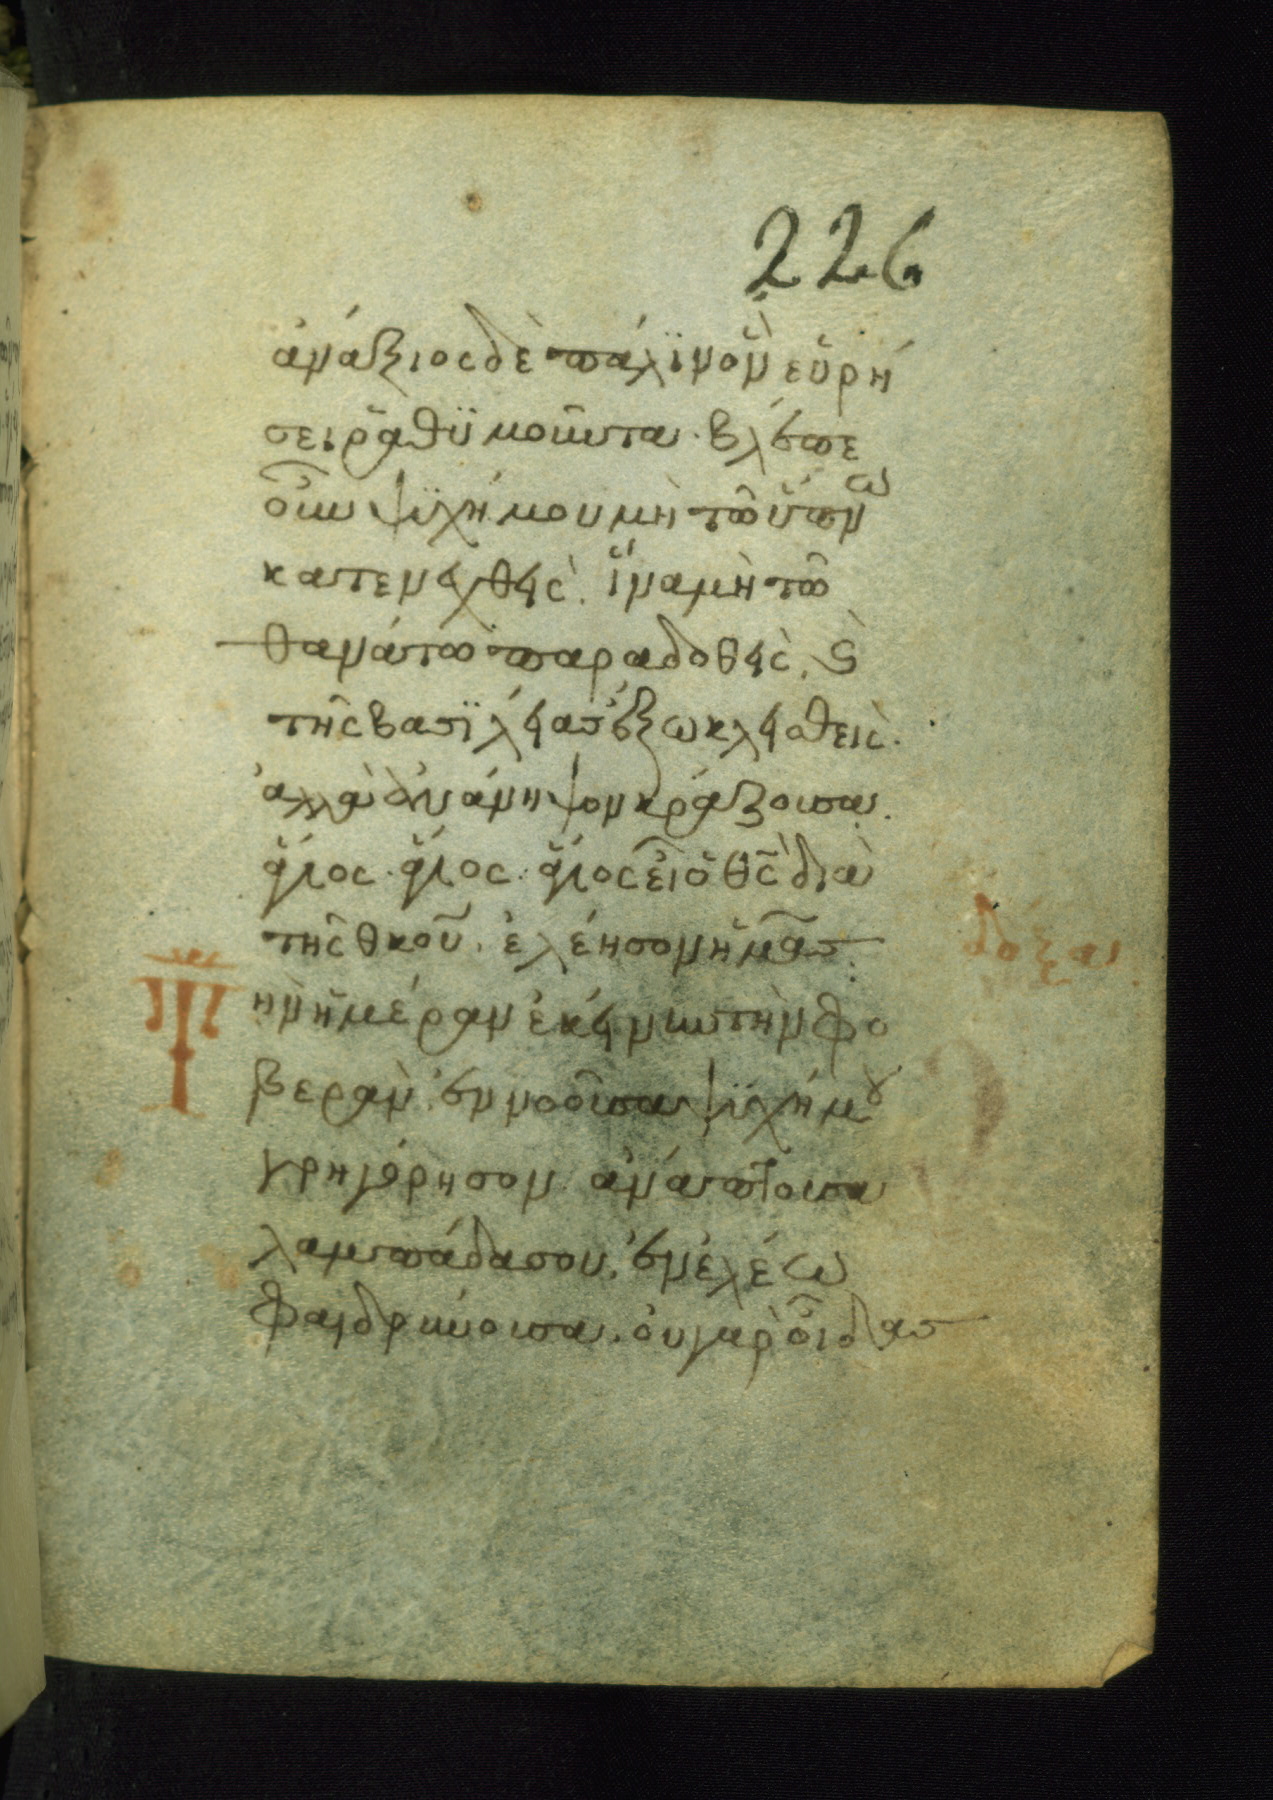 226
ἀνάξιος δὲ πάλϊν ὃν εὑρή
σει ῥαθϋμοῦντα· βλέπε
οὖν ψϋχή μου μὴ τῶ ὕπνω
κατενεχθῆς· ἵνα μὴ τῶ
θανάτω παραδοθῆς, ϗ
τῆς βασϊλείας ἔξω κλεισθεὶς·
ἀλλὰ ἀνάνηψον κράζουσα·
ἅγιος· ἅγιος· ἅγιος εἶ ὁ θς̅ διὰ
τῆς θκου· ἐλέησον ἡμᾶς
δόξα
Τὴν ἡμέραν ἐκείνην τὴν φο
βερὰν· ἐννοοῦσα ψϋχή μου
γρηγόρησον ἀνάπτουσα
λαμπάδα σου, ἐν ἐλέω
φαιδρύνουσα· οὐ γὰρ οἶδας